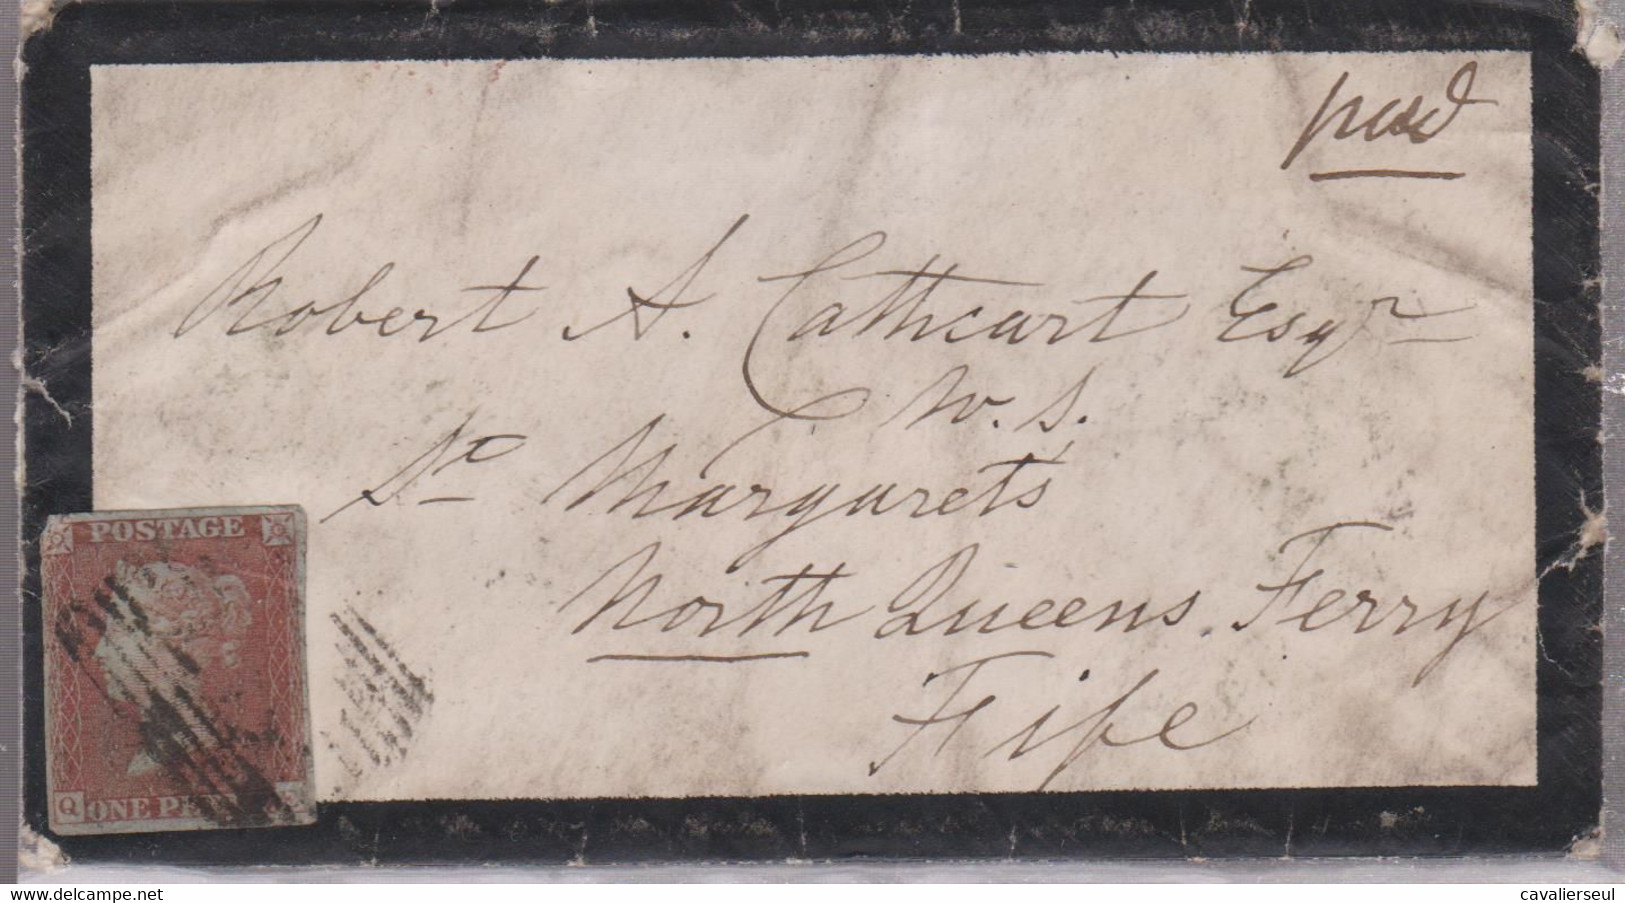 paid
Robert A. Cathcart Esqr
W.S.
St Margarets
North Queens Ferry
Fife
POSTAGE
Q ONE PE
delcampe.net
cavalierseul